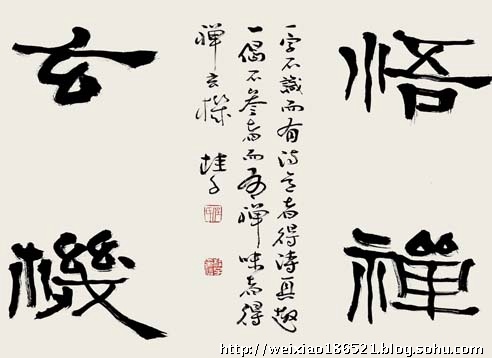 悟禪
一字不識而有詩意者得詩真趣
一偈不參而有禪味者得
禪玄機
玄機
http://weixiao186521.blog.sohu.com/